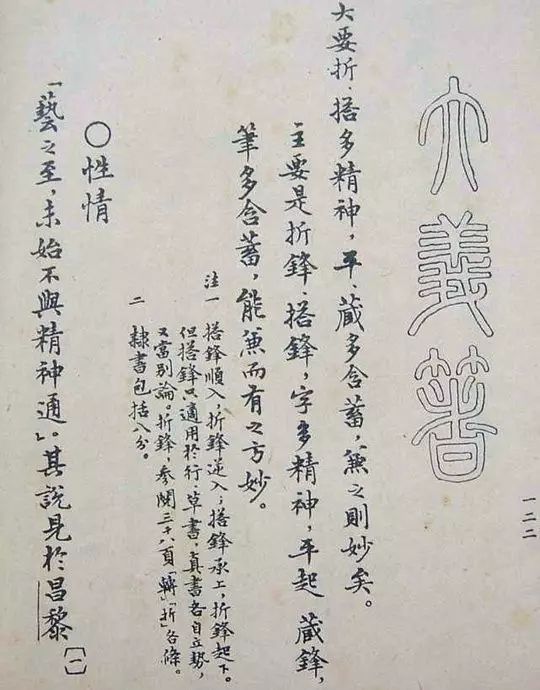 大義箸
一二二
大要折、搭多精神，平、藏多含蓄，兼之則妙矣。
主要是折鋒、搭鋒，字多精神，平起 藏鋒，
筆多含蓄，能兼而有之方妙。
注一 搭鋒順入，折鋒逆入；搭鋒承上，折鋒起下。
但搭鋒只適用於行、草書，真書各自立勢，
又當別論。折鋒參閱三十八頁「轉」「折」各條。
二 隸書包括八分。
〇性情
「藝之至，未始不與精神通」。其說見於昌黎〔一〕